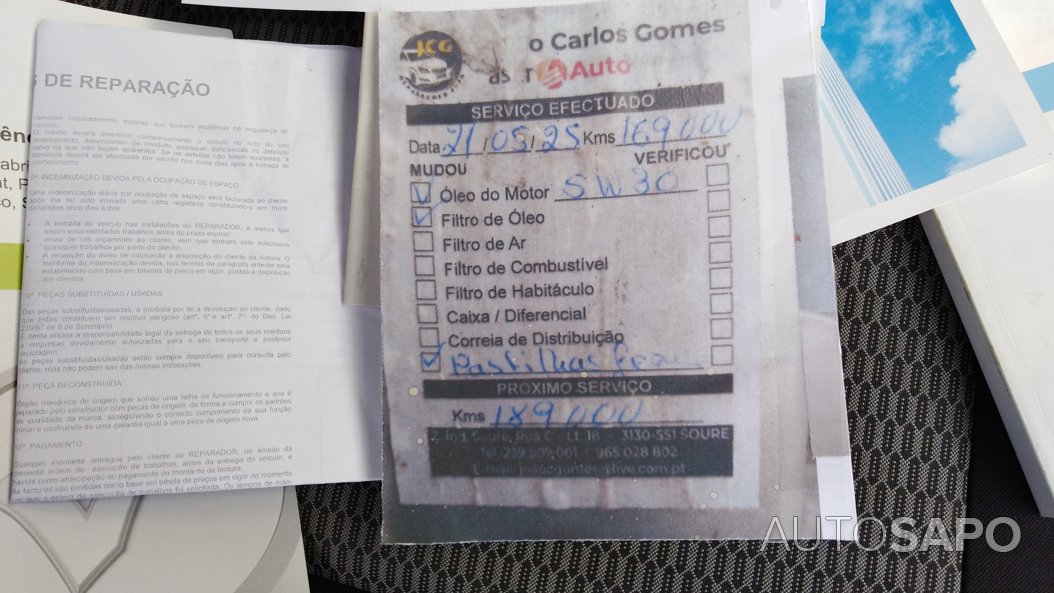 S DE REPARAÇÃO
remediar imediatamente aquelas que tenham incidência na segurança do
veículo.
O cliente deverá examinar cuidadosamente o veículo no acto do seu
levantamento, denunciando de imediato quaisquer deficiências ou defeitos,
salvo os que não sejam aparentes. Se os defeitos não forem aparentes, a
denúncia deverá ser efectuada por escrito nos trinta dias após a tomada de
conhecimento.
9ª INDEMNIZAÇÃO DEVIDA PELA OCUPAÇÃO DE ESPAÇO
Uma indemnização diária por ocupação de espaço será facturada ao cliente,
após lhe ter sido enviada uma carta registada constituindo-o em mora,
decorridos onze dias sobre:
A entrada do veículo nas instalações do REPARADOR, a menos que
sejam encomendados trabalhos antes do prazo expirar;
envio de um orçamento ao cliente, sem que tenham sido solicitados
quaisquer trabalhos por parte do cliente;
A recepção do aviso de colocação à disposição do cliente da viatura. O
montante da indemnização devida, nos termos do parágrafo anterior será
estabelecido com base em tabelas de preço em vigor, postas à disposição
dos clientes.
10ª PEÇAS SUBSTITUÍDAS / USADAS
Das peças substituídas/usadas, é proibida por lei a devolução ao cliente, dado
que estas constituem um resíduo perigoso (artº. 6º e artº. 7º. do Dec. Lei
239/97 de 9 de Setembro)
É desta oficina a responsabilidade legal da entrega de todos os seus resíduos
a empresas devidamente autorizadas para o seu transporte e posterior
reciclagem
As peças substituídas/usadas estão sempre disponíveis para consulta pelo
cliente, mas não podem sair das nossas instalações.
11ª. PEÇA RECONSTRUÍDA
Órgão mecânico de origem que sofreu uma falha de funcionamento e que é
reparado pelo constructor com peças de origem de forma a cumprir os padrões
de qualidade da marca, assegurando o correcto cumprimento da sua função
inicial e usufruindo de uma garantia igual a uma peça de origem nova
12ª PAGAMENTO
Qualquer montante entregue pelo cliente ao REPARADOR, no âmbito da
presente ordem de execução de trabalhos, antes da entrega do veículo, é
havido como antecipação do pagamento do montante da factura
As facturas são emitidas como base em tabela de preços em vigor no momento
em que a ordem de execução de trabalhos foi solicitada. Os tempos de mão-
JCG
o Carlos Gomes
Auto
SERVIÇO EFECTUADO
Data 21/05/25 Kms 169000
MUDOU VERIFICOU
Óleo do Motor 5W30
Filtro de Óleo
Filtro de Ar
Filtro de Combustível
Filtro de Habitáculo
Caixa / Diferencial
Correia de Distribuição
Pastilhas
PRÓXIMO SERVIÇO
Kms 189000
Z. Ind. Soure, Rua C - Lt. 18 - 3130-551 SOURE
Tel. 239 509 001 | 965 028 802
AUTOSAPO